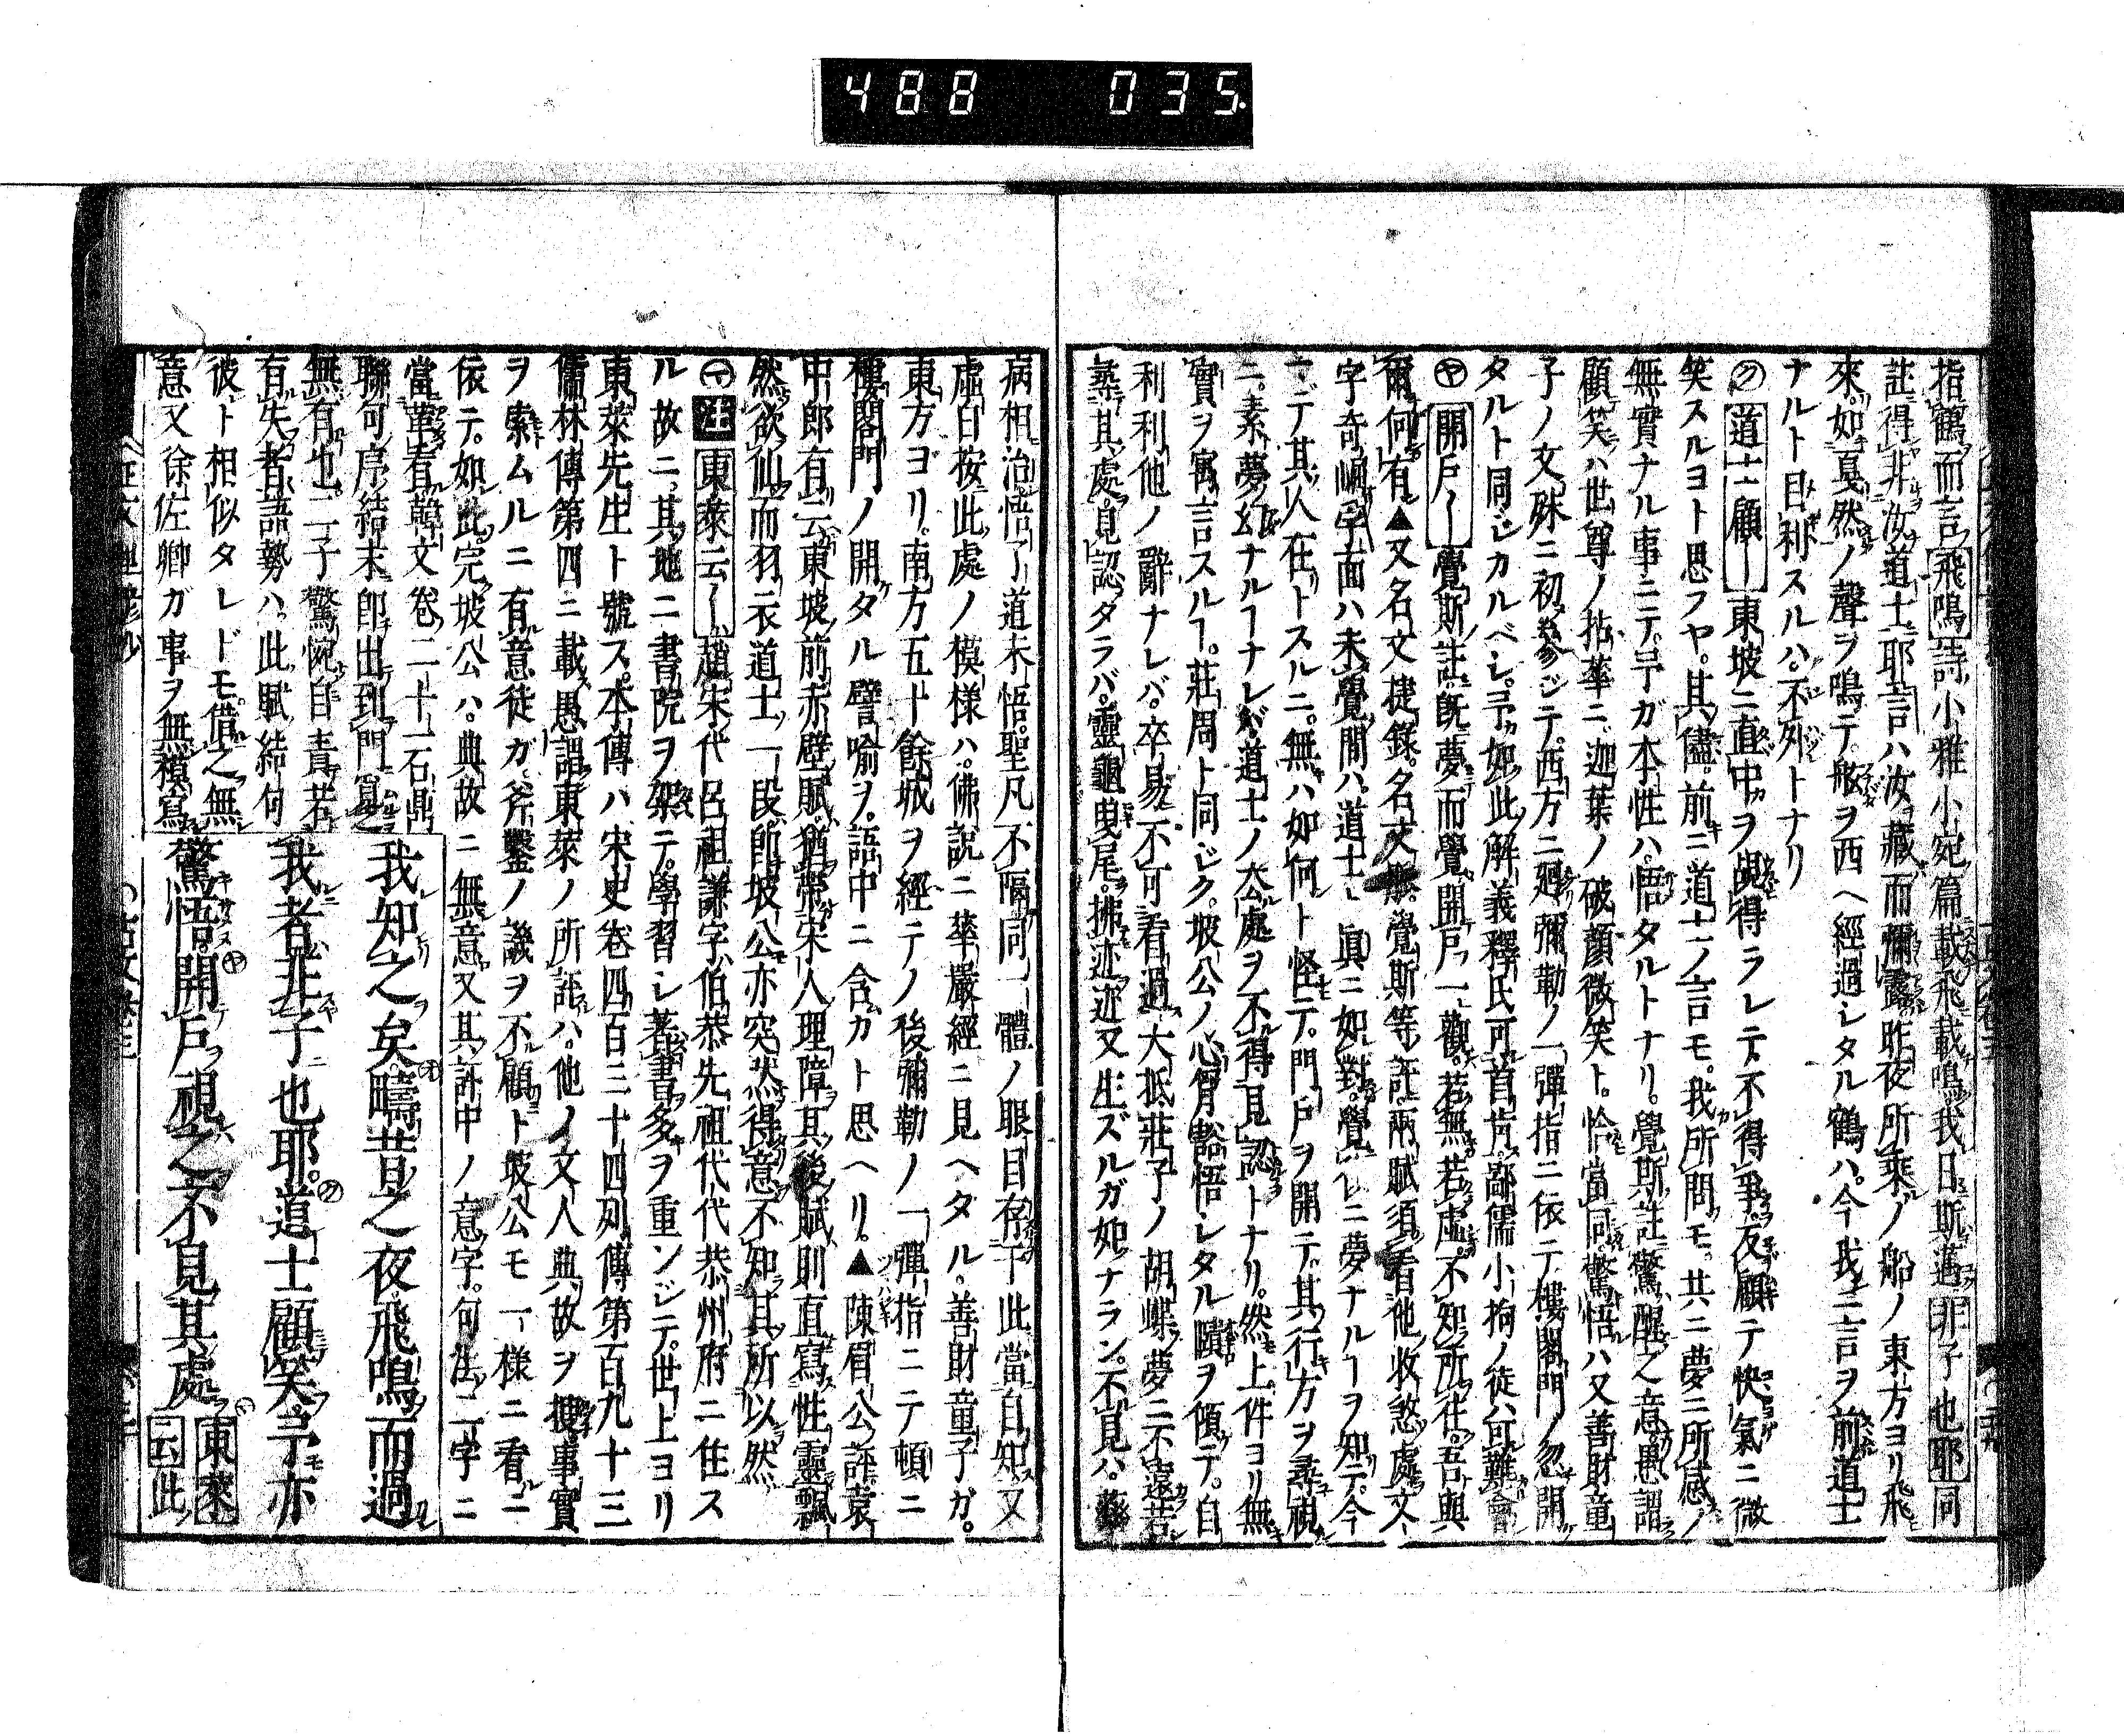 488 035
指鶴而言飛鳴詩小雅小宛篇載飛載鳴我日斯邁非子也耶同
註得非汝道士耶言ハ汝藏而彌露昨夜所乘ノ船ノ東方ヨリ飛
來如戞然ノ聲ヲ鳴テ舩ヲ西ヘ經過シタル鶴ハ今我ニ言ヲ前道士
ナルト目利スルハ不外トナリ
㋗道士顧ー東坡ニ直中ヲ覷得ラレテ不得爭反顧テ快氣ニ微
笑スルヨト思フヤ其儘前ニ道士ノ言モ我所問モ共ニ夢ニ所感ノ
無實ナル事ニテ予ガ本性ハ悟タルトナリ覺斯註驚醒之意愚謂
顧笑ハ世尊ノ拈華ニ迦葉ノ破顔微笑ト恰當同驚悟ハ又善財童
子ノ文殊ニ初參ジテ西方ニ廻彌勒ノ一彈指ニ依テ樓閣門ノ忽開
タルト同ジカルベシ予如此解義釋氏可首肯鄙儒小拘ノ徒ハ可難會
㋳開戸ー覺斯註既夢而覺開戸一觀若無若虛不知所往吾與
爾何有▲又名文捷錄名文觧覺斯等註兩賦須看他收煞處文
字奇幅字面ハ未覺間ハ道士ト眞ニ如對覺レニ夢ナルーヲ知テ今
ニデ其人在トスルニ無ハ如何ト怪テ門戸ヲ開テ其行方ヲ尋視
ニ素夢幻ナルーナレバ道士ノ在處ヲ不得見認トナリ然上件ヨリ無
實ヲ寓言スルー莊周ト同ジク坡公ノ心胷豁悟シタル賾ヲ傾テ自
利利他ノ辭ナレバ卒易不可看過大抵莊子ノ胡蝶夢ニ不遠若
其處見認タラバ靈龜曳尾拂迹迹又生ズルガ如ナラン不見ハ
病相治悟了道未悟聖凡不隔同一體ノ眼目存于此當自知又
虛白按此處ノ模樣ハ佛說ニ華嚴經ニ見ヘタル善財童子ガ
東方ヨリ南方五十餘城ヲ經テノ後彌勒ノ一彈指ニテ頓ニ
樓閣門ノ開タル譬喻ヲ語中ニ含カト思ヘリ▲陳眉公評袁
中郎有云東坡前赤壁賦猶帶宋人理障其後賦則直寫性靈飄
然欲仙而羽衣道士一段卽坡公亦突然得意不知其所以然
㋮注東萊云ー趙宋代呂祖謙字伯恭先祖代代恭州府ニ住ス
ル故ニ其地ニ書院ヲ架テ學習シ著書多ヲ重ンジテ世上ヨリ
東萊先生ト號ス本傳ハ宋史卷四百三十四列傳第百九十三
儒林傳第四ニ載愚謂東萊ノ所註ハ他ノ文人典故ヲ捜事實
ヲ索ムルニ有意徒ガ斧鑿ノ譏ヲ不顧ト坡公モ一樣ニ看ニ
依テ如此完坡公ハ典故ニ無意又其註中ノ意字何法二字ニ
當華看韓文卷二十一石鼎
聯句序結末卽出到門覓
無有也二子驚惋自責若
有失者語勢ハ此賦結句
彼ト相似タレドモ借之無
意又徐佐卿ガ事ヲ無模寫
我知之矣疇昔之夜飛鳴而過
我者非子也耶道士顧笑予亦
驚悟開戸視之不見其處東萊云此